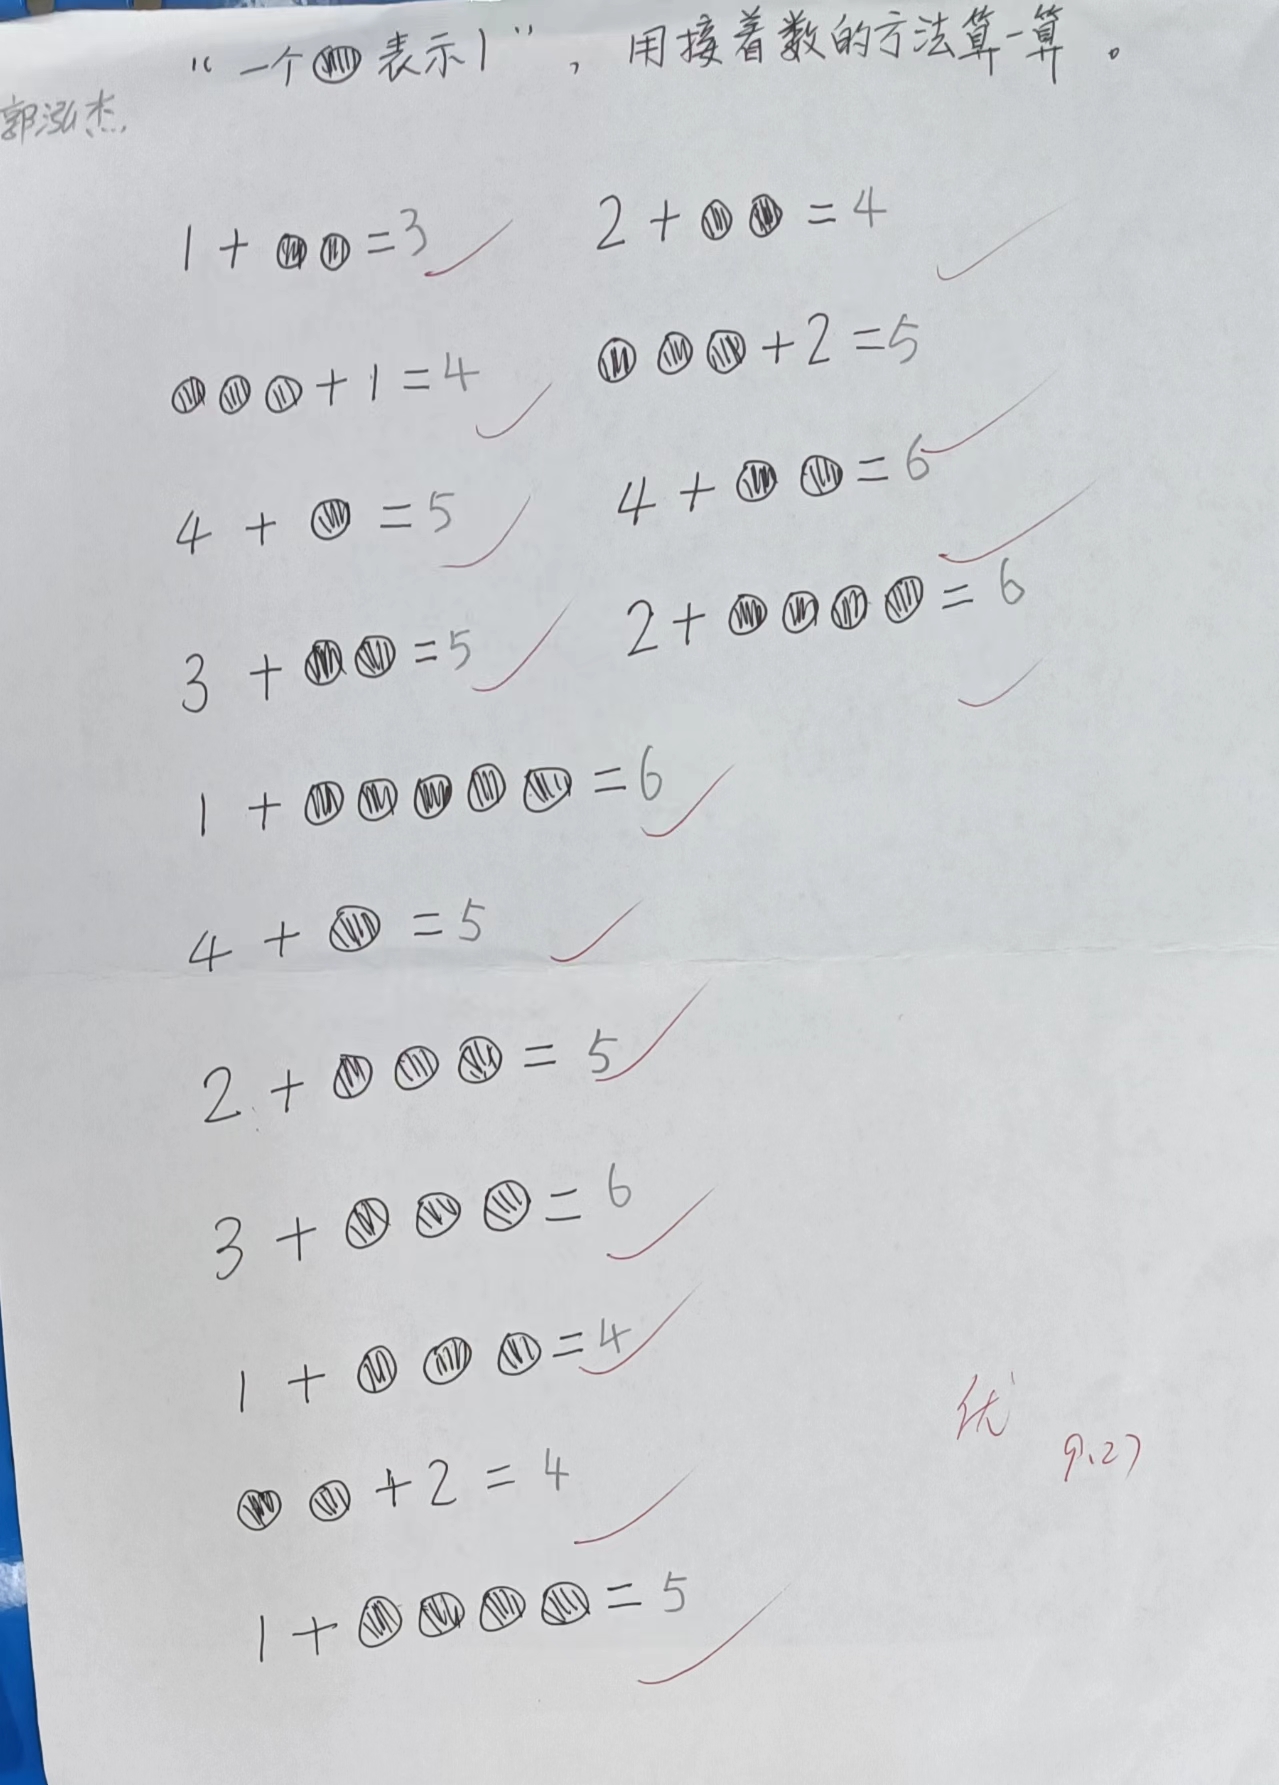 “一个●表示1”，用接着数的方法算一算。
郭泓杰
1+●●=3 2+●●=4
●●●+1=4 ●●●+2=5
4+●=5 4+●●=6
3+●●=5 2+●●●●=6
1+●●●●●=6
4+●=5
2+●●●=5
3+●●●=6
1+●●●=4
优
9.27
●●+2=4
1+●●●●=5